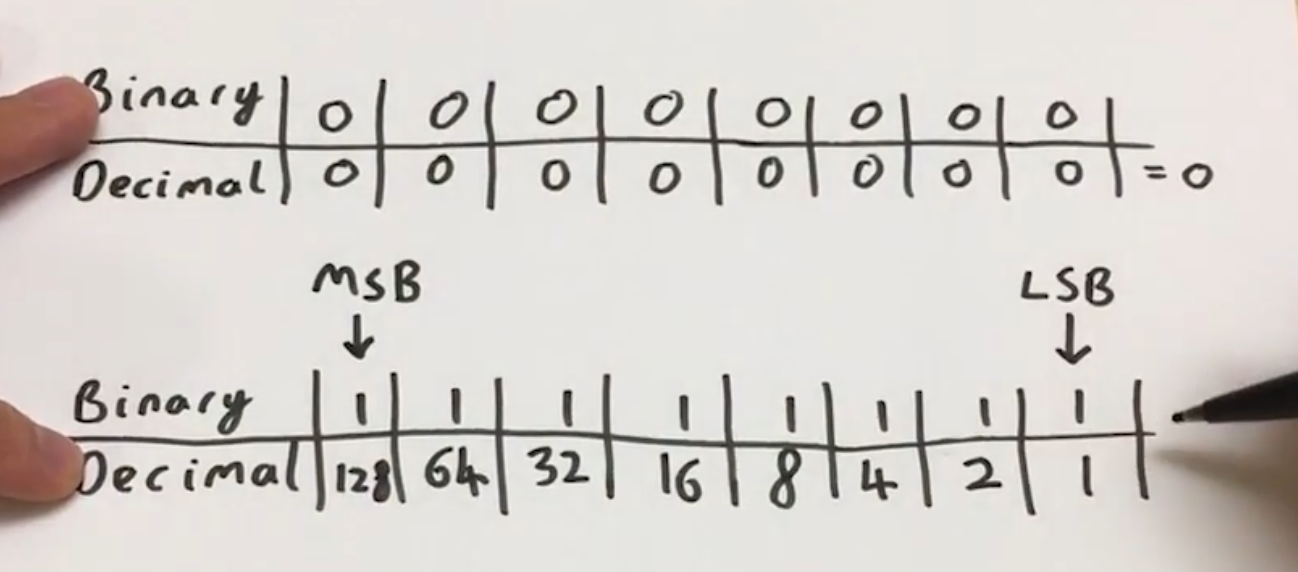 Binary | 0 | 0 | 0 | 0 | 0 | 0 | 0 | 0 |
Decimal | 0 | 0 | 0 | 0 | 0 | 0 | 0 | 0 | = 0
MSB LSB
↓ ↓
Binary | 1 | 1 | 1 | 1 | 1 | 1 | 1 | 1 |
Decimal | 128 | 64 | 32 | 16 | 8 | 4 | 2 | 1 |